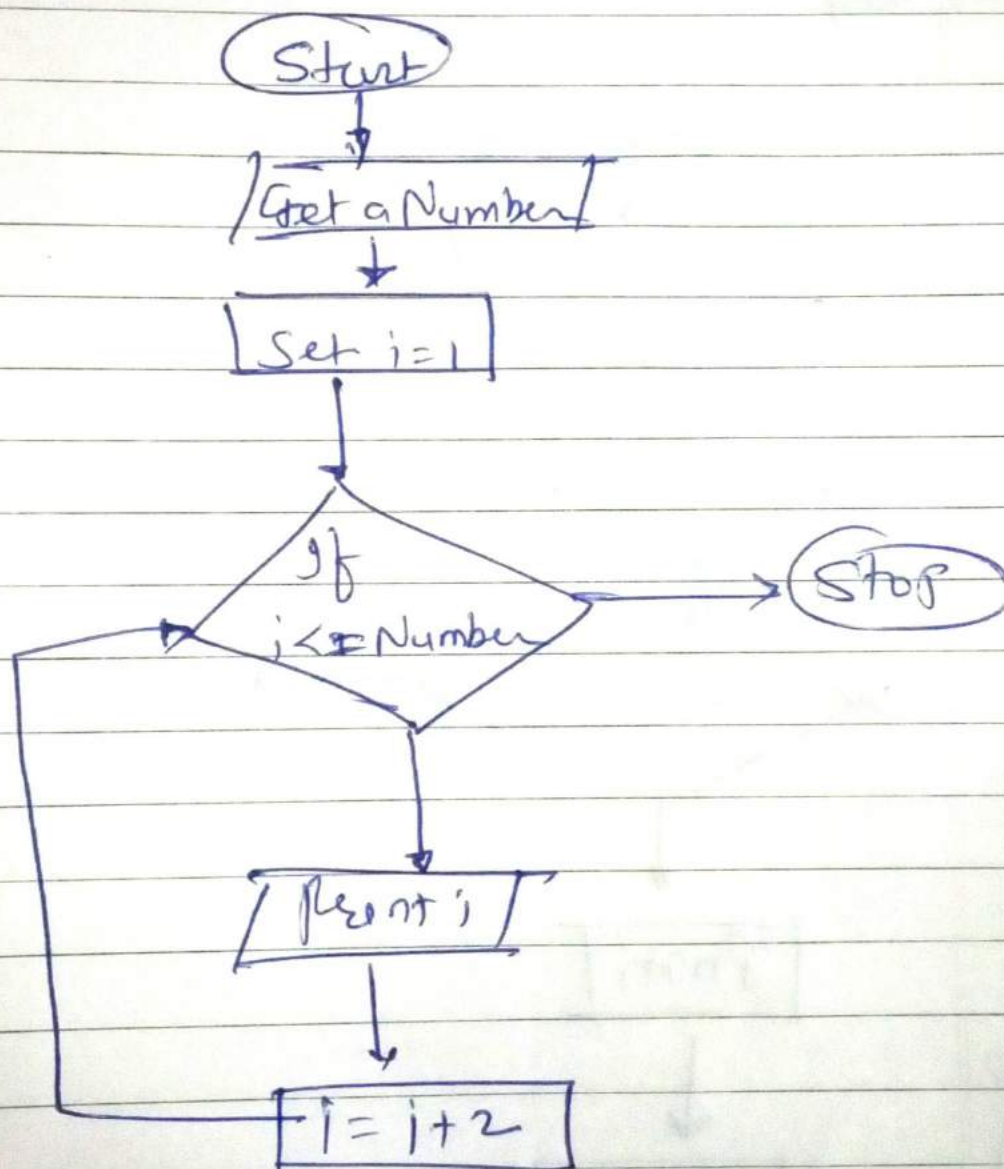 Start
Get a Number
Set i=1
If
i<=Number
Stop
Print i
i = i+2